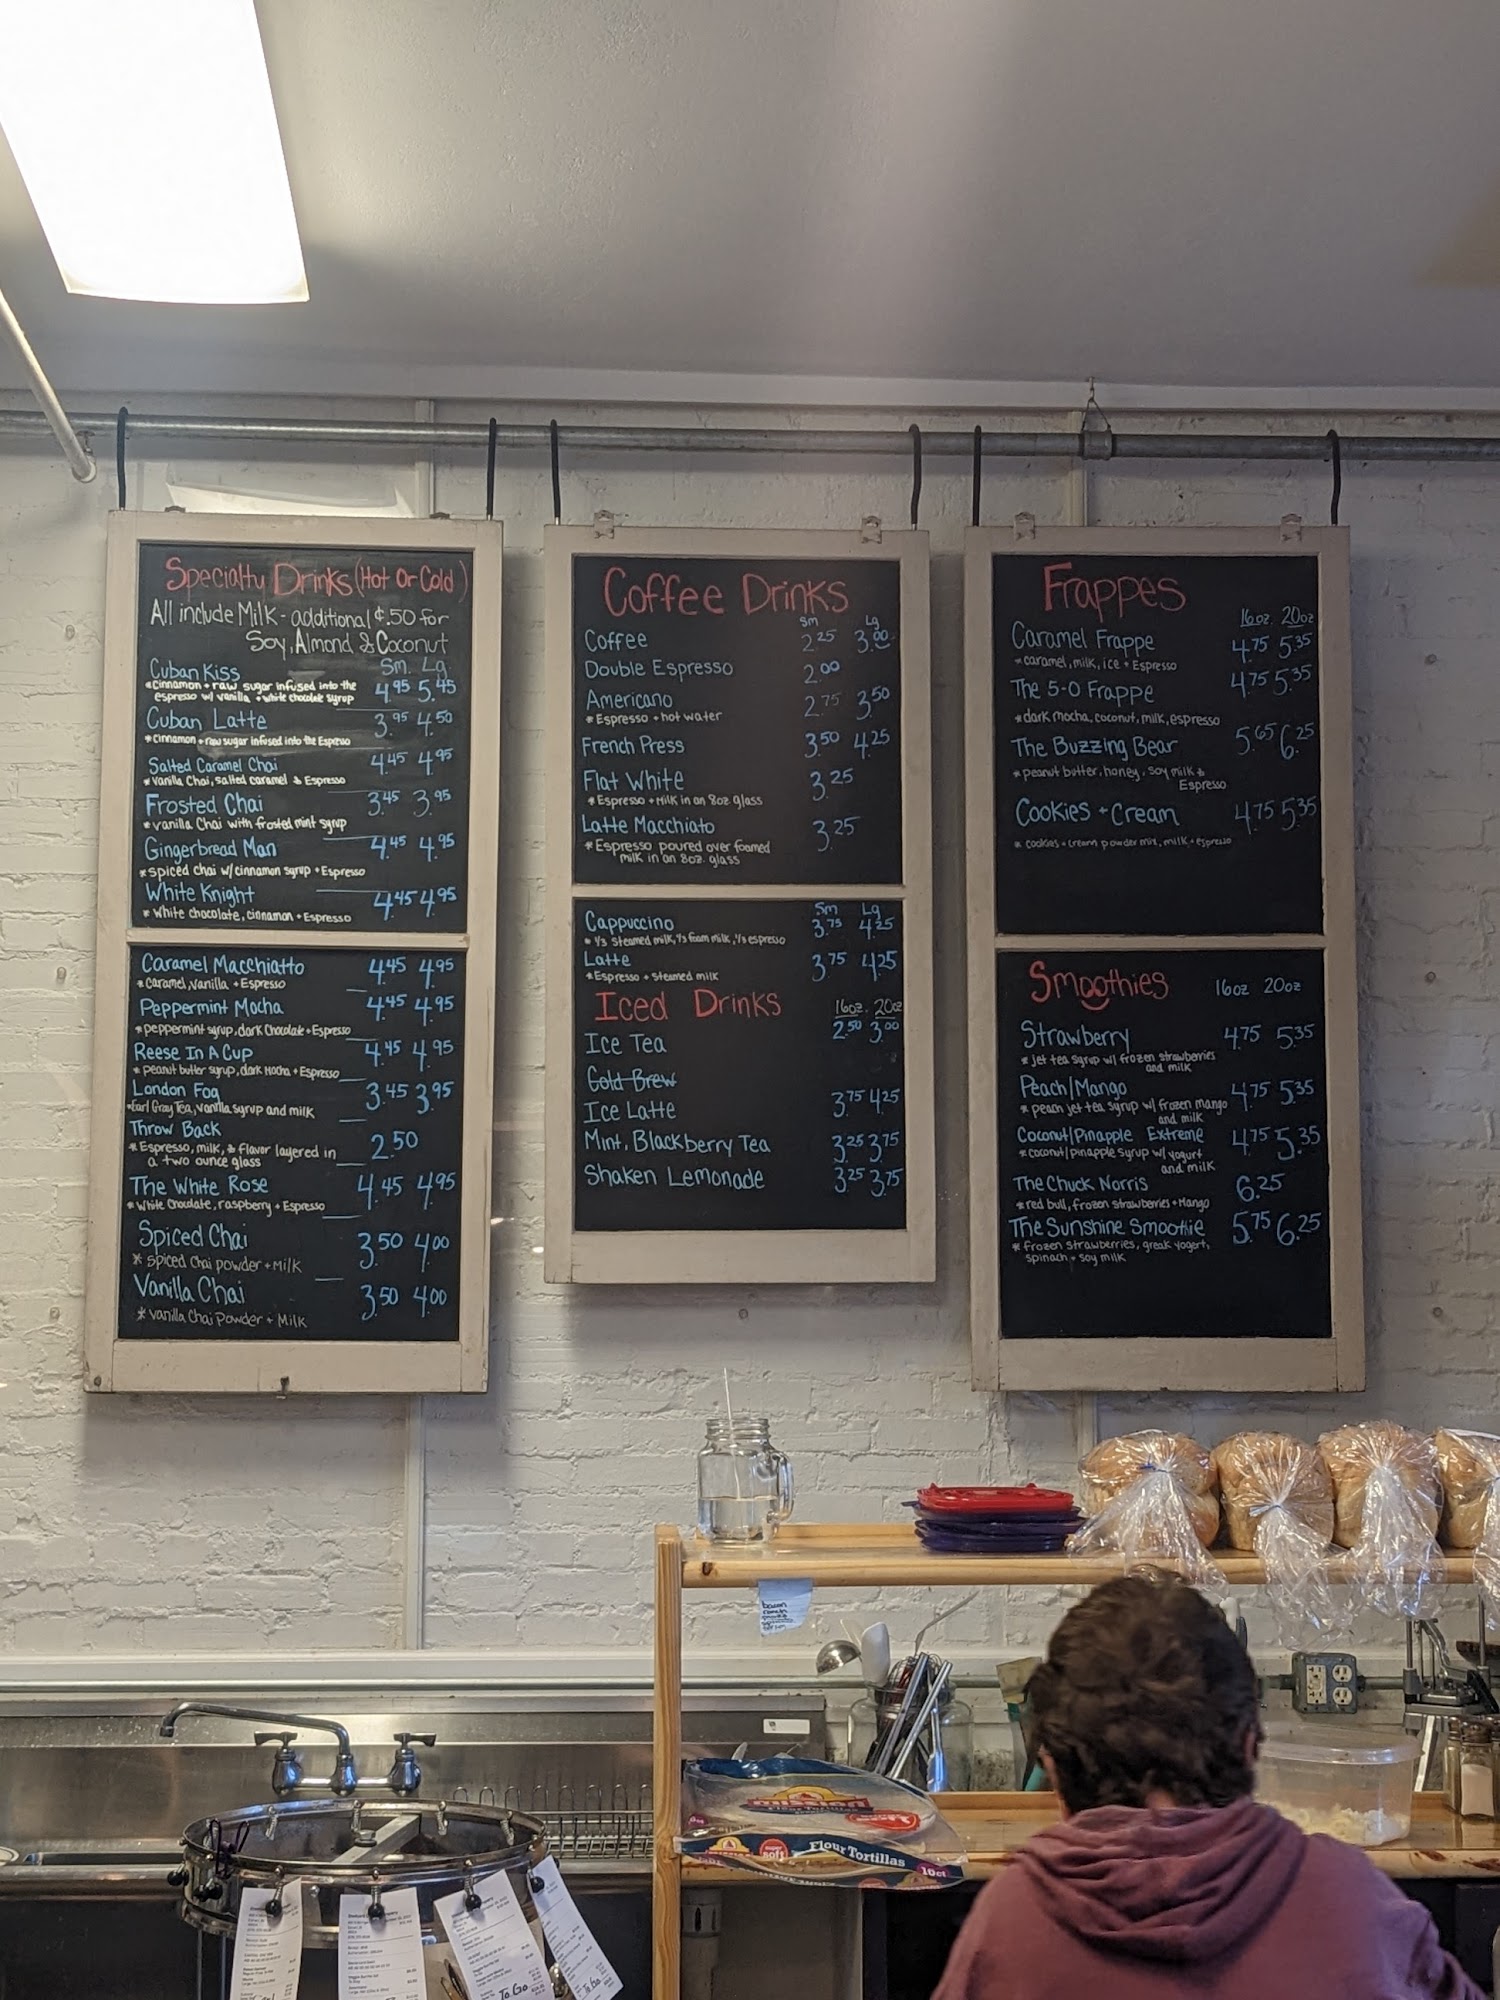 Specialty Drinks (Hot Or Cold)
All include Milk - additional ¢.50 for
Soy, Almond & Coconut
Sm. Lg.
Cuban Kiss 4.95 5.45
*cinnamon + raw sugar infused into the
espresso w/ vanilla + white chocolate syrup
Cuban Latte 3.95 4.50
*cinnamon + raw sugar infused into the Espresso
Salted Caramel Chai 4.45 4.95
*vanilla Chai, salted caramel & Espresso
Frosted Chai 3.45 3.95
*vanilla Chai with frosted mint syrup
Gingerbread Man 4.45 4.95
*spiced chai w/ cinnamon syrup + Espresso
White Knight 4.45 4.95
*White chocolate, cinnamon + Espresso
Caramel Macchiatto 4.45 4.95
*caramel, vanilla + Espresso
Peppermint Mocha 4.45 4.95
*peppermint syrup, dark Chocolate + Espresso
Reese In A Cup 4.45 4.95
*peanut butter syrup, dark Mocha + Espresso
London Fog 3.45 3.95
*Earl Gray Tea, vanilla syrup and milk
Throw Back 2.50
*Espresso, milk, & flavor layered in
a two ounce glass
The White Rose 4.45 4.95
*White Chocolate, raspberry + Espresso
Spiced Chai 3.50 4.00
* spiced Chai powder + Milk
Vanilla Chai 3.50 4.00
* vanilla Chai Powder + Milk
Coffee Drinks
Sm Lg
Coffee 2.25 3.00
Double Espresso 2.00
Americano 2.75 3.50
*Espresso + hot water
French Press 3.50 4.25
Flat White 3.25
*Espresso + Milk in an 8oz. glass
Latte Macchiato 3.25
*Espresso poured over foamed
milk in an 8oz. glass
Sm Lg
Cappuccino 3.75 4.25
* 1/3 steamed milk, 1/3 foam milk, 1/3 espresso
Latte 3.75 4.25
*Espresso + steamed milk
Iced Drinks 16oz. 20oz
Ice Tea 2.50 3.00
Cold Brew
Ice Latte 3.75 4.25
Mint, Blackberry Tea 3.25 3.75
Shaken Lemonade 3.25 3.75
Frappes
16oz 20oz
Caramel Frappe 4.75 5.35
*caramel, milk, ice + Espresso
The 5-0 Frappe 4.75 5.35
*dark mocha, coconut, milk, espresso
The Buzzing Bear 5.65 6.25
*peanut butter, honey, soy milk &
Espresso
Cookies + Cream 4.75 5.35
* cookies + cream powder mix, milk + espresso
Smoothies 16oz 20oz
Strawberry 4.75 5.35
*jet tea syrup w/ frozen strawberries
and milk
Peach/Mango 4.75 5.35
*peach jet tea syrup w/ frozen mango
and milk
Coconut/Pinapple Extreme 4.75 5.35
*coconut/pinapple syrup w/ yogurt
and milk
The Chuck Norris 6.25
*red bull, frozen strawberries + Mango
The Sunshine Smoothie 5.75 6.25
* frozen strawberries, greak yogert,
spinach + soy milk
mission
Flour Tortillas
soft
Flour Tortillas
10ct
To Go
To Go